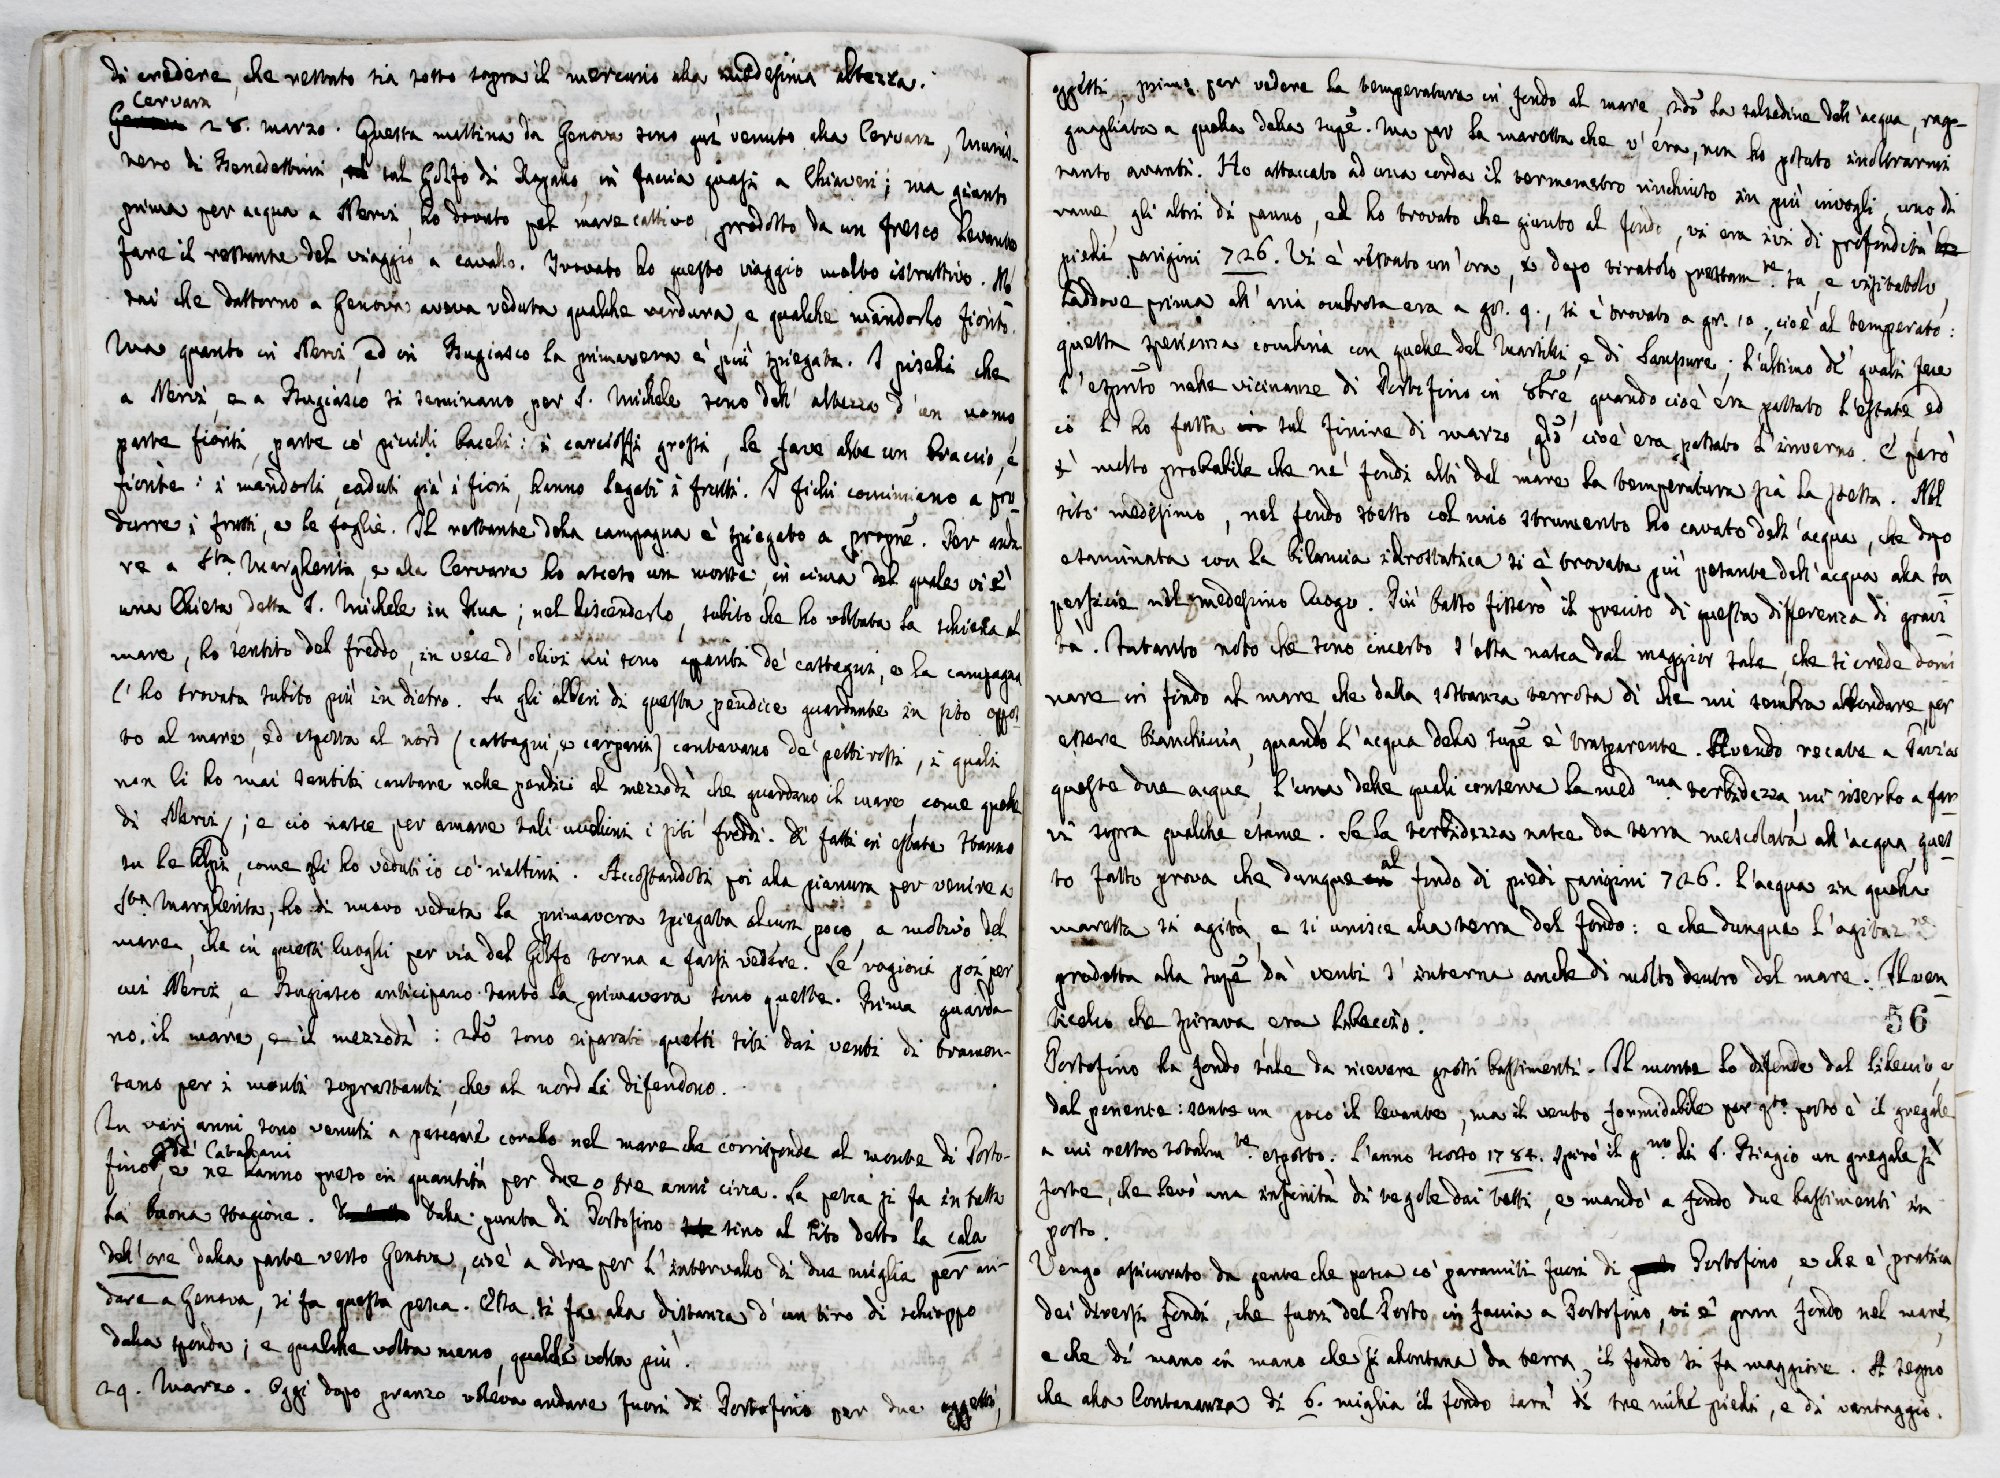 di credere, che restato sia sotto sopra il mercurio alla medesima altezza.
Cervara
28. marzo. Questa mattina da Genova sono quì venuto alla Cervara, Monis-
tero di Benedettini, sul Golfo di Rapallo, in faccia quasi a Chiaveri; ma giunto
prima per acqua a Nervi, ho dovuto pel mare cattivo, prodotto da un fresco Levante
fare il restante del viaggio a cavallo. Trovato ho questo viaggio molto istruttivo. No-
tai che dattorno a Genova aveva veduta qualche verdura, e qualche mandorlo fiorito.
Ma quanto in Nervi, ed in Bugiasco la primavera è più spiegata. I piselli che
a Nervi, e a Bugiasco si seminano per S. Michele sono dell' altezza d'un uomo
parte fioriti, parte co' piccioli baccelli: i carcioffi grossi, le fave alte un braccio, e
fiorite: i mandorli, caduti già i fiori, hanno legati i frutti. I fichi cominciano a pro-
durre i frutti, e le foglie. Il restante della campagna è spiegato a proporne. Per anda-
re a Sta. Margherita, e alla Cervara ho asceso un monte, in cima del quale vi è
una Chiesa detta S. Michele in Rua; nel discenderlo, subito che ho voltata la schiena al
mare, ho sentito del freddo, in vece d'olivi mi sono apparsi de' castagni, e la campagna
l'ho trovata subito più in dietro. Su gli alberi di questa pendice guardante in sito oppos-
to al mare, ed esposta al nord (castagni, e carpani) cantavano de' pettirossi, i quali
non li ho mai sentiti cantare nelle pendici al mezzodì che guardano il mare, come quelle
di Nervi; e ciò nasce per amare tali uccelletti i siti freddi. Di fatti in estate stanno
su le Alpi, come gli ho veduti io co' niattini. Accostandosi poi alla pianura per venire a
Sta. Margherita, ho di nuovo veduta la primavera spiegata alcun poco, a motivo del
mare, che in questi luoghi per via del Golfo torna a farsi vedere. Le ragioni poi per
cui Nervi, e Bugiasco anticipano tanto la primavera sono queste. Prima guarda-
no il mare, e il mezzodì: 2do sono riparati questi siti dai venti di tramon-
tano per i monti soprastanti, che al nord li difendono.
In varj anni sono venuti a pescare corallo nel mare che corrisponde al monte di Porto-
de' Catalani
fino, e ne hanno preso in quantità per due o tre anni circa. La pesca si fa in tutta
la buona stagione. Dalla punta di Portofino sino al sito detto la cala
dell'ore dalla parte verso Genova, cioè a dire per l'intervallo di due miglia per an-
dare a Genova, si fa questa pesca. Essa si fa alla distanza d'un tiro di schioppo
dalla sponda; e qualche volta meno, qualche volta più.
29. Marzo. Oggi dopo pranzo voleva andare fuori di Portofino per due oggetti,
oggetti, prima per vedere la temperatura in fondo al mare, 2do la salsedine dell'acqua, rag-
guagliata a quella della supe. Ma per la maretta che v'era, non ho potuto inoltrarmi
tanto avanti. Ho attaccato ad una corda il termometro rinchiuso in più invogli, uno di
rame, gli altri di panno, ed ho trovato che giunto al fondo, vi era ivi di profondità
piedi parigini 726. Vi è restato un'ora, e dopo tiratolo prestamte. su, e visitatolo,
laddove prima all'aria ombrosa era a gr. 9., si è trovato a gr. 10., cioè al temperato:
questa sperienza combina con quelle del Marsilli, e di Saussure; l'ultimo de' quali fece
l'esperimto nelle vicinanze di Portofino in 8bre, quando cioè era passato l'estate, ed
io l'ho fatta sul finire di marzo, qdo cioè era passato l'inverno. È però
è molto probabile che ne' fondi alti del mare la temperatura sia la stessa. Nel
sito medesimo, nel fondo stesso col mio strumento ho cavato dell'acqua, che dopo
esaminata con la bilancia idrostatica si è trovata più pesante dell'acqua alla su-
perficie nel medesimo luogo. Più basso fisserò il preciso di questa differenza di gravi-
tà. Intanto noto che sono incerto s'essa nasca dal maggior sale, che si crede domi-
nare in fondo al mare che dalla sostanza terrosa di che mi sembra abbondare, per
essere bianchiccia, quando l'acqua della supe è trasparente. Avendo recate a Pavia
queste due acque, l'una delle quali conserva la medma torbidezza, mi riserbo a far-
vi sopra qualche esame. Se la torbidezza nasce da terra mescolata all'acqua, ques-
al
to fatto prova, che dunque fondo di piedi parigini 726. l'acqua in quella
maretta si agita, e si unisce alla terra del fondo: e che dunque l'agitazne
prodotta alla supe da' venti s'interna anche di molto dentro del mare. Il ven-
ticello che spirava era libeccio.
56
Portofino ha fondo tale da ricevere grossi bastimenti. Il monte lo difende dal libeccio, e
dal ponente: sente un poco il levante, ma il vento formidabile per qto. porto è il gregale
a cui resta totalmte. esposto. L'anno scorso 1784. spirò il gno. di S. Biagio un gregale sì
forte, che levò una infinità di tegole dai tetti, e mandò a fondo due bastimenti in
porto.
Vengo assicurato da gente che pesca co' paramiti fuori di Portofino, e che è pratica
dei diversi fondi, che fuori del Porto in faccia a Portofino, vi è gran fondo nel mare,
e che di mano in mano che si allontana da terra, il fondo si fa maggiore. A segno
che alla lontananza di 6. miglia il fondo sarà di tre mille piedi, e di vantaggio.